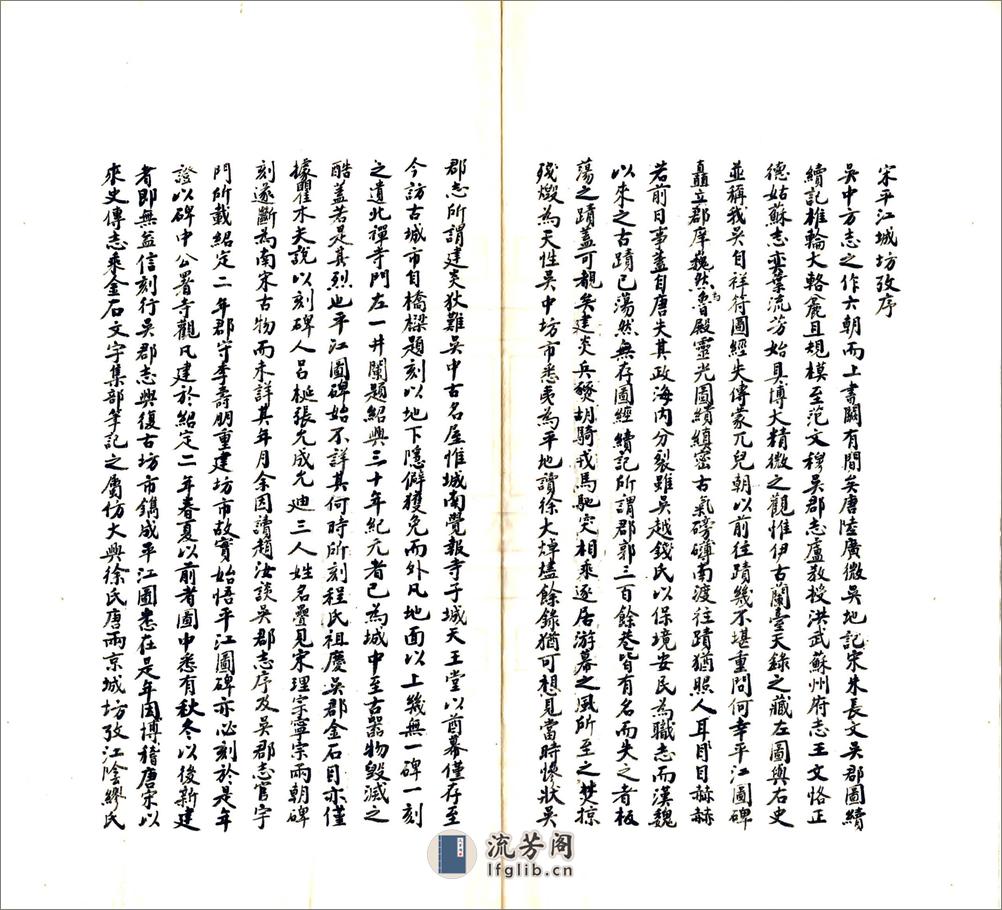 宋平江城坊攷序
吳中方志之作六朝而上書闕有間矣唐陸廣微吳地記宋朱長文吳郡圖經
續記椎輪大輅麄且規模至范文穆吳郡志盧敎授洪武蘇州府志王文恪正
德姑蘇志奕葉流芳始具博大精微之觀惟伊古蘭臺天錄之藏左圖與右史
並稱我吳自祥符圖經失傳蒙兀兒朝以前往蹟幾不堪重問何幸平江圖碑
矗立郡庠巍然魯殿靈光圖繢縝密古氣磅礡南渡往蹟猶照人耳目目赫赫
若前日事蓋自唐失其政海內分裂雖吳越錢氏以保境安民為職志而漢魏
以來之古蹟已蕩然無存圖經續記所謂郡郭三百餘巷皆有名而失之者板
蕩之蹟蓋可覩矣建炎兵燹胡騎戎馬馳突相乘逐居游幕之風所至之焚掠
殘燬為天性吳中坊市悉夷為平地讀徐大焯燼餘錄猶可想見當時慘狀吳
郡志所謂建炎狄難吳中古名屋惟城南覺報寺子城天王堂以酋幕僅存至
今訪古城市自橋樑題刻以地下隱僻獲免而外凡地面以上幾無一碑一刻
之遺北禪寺門左一井闌題紹興三十年紀元者已為城中至古器物毀滅之
酷蓋若是其烈也平江圖碑始不詳其何時所刻程氏祖慶吳郡金石目亦僅
據瞿木夫說以刻碑人呂梴張允成允迪三人姓名疊見宋理宗寧宗兩朝碑
刻遂斷為南宋古物而未詳其年月余因讀趙汝談吳郡志序及吳郡志官宇
門所載紹定二年郡守李壽朋重建坊市故實始悟平江圖碑亦必刻於是年
證以碑中公署寺觀凡建於紹定二年春夏以前者圖中悉有秋冬以後新建
者即無益信刻行吳郡志與復古坊市鐫成平江圖悉在是年因博稽唐宋以
來史傳志乘金石文字集部筆記之屬仿大興徐氏唐兩京城坊攷江陰繆氏
流芳阁
lfglib.cn